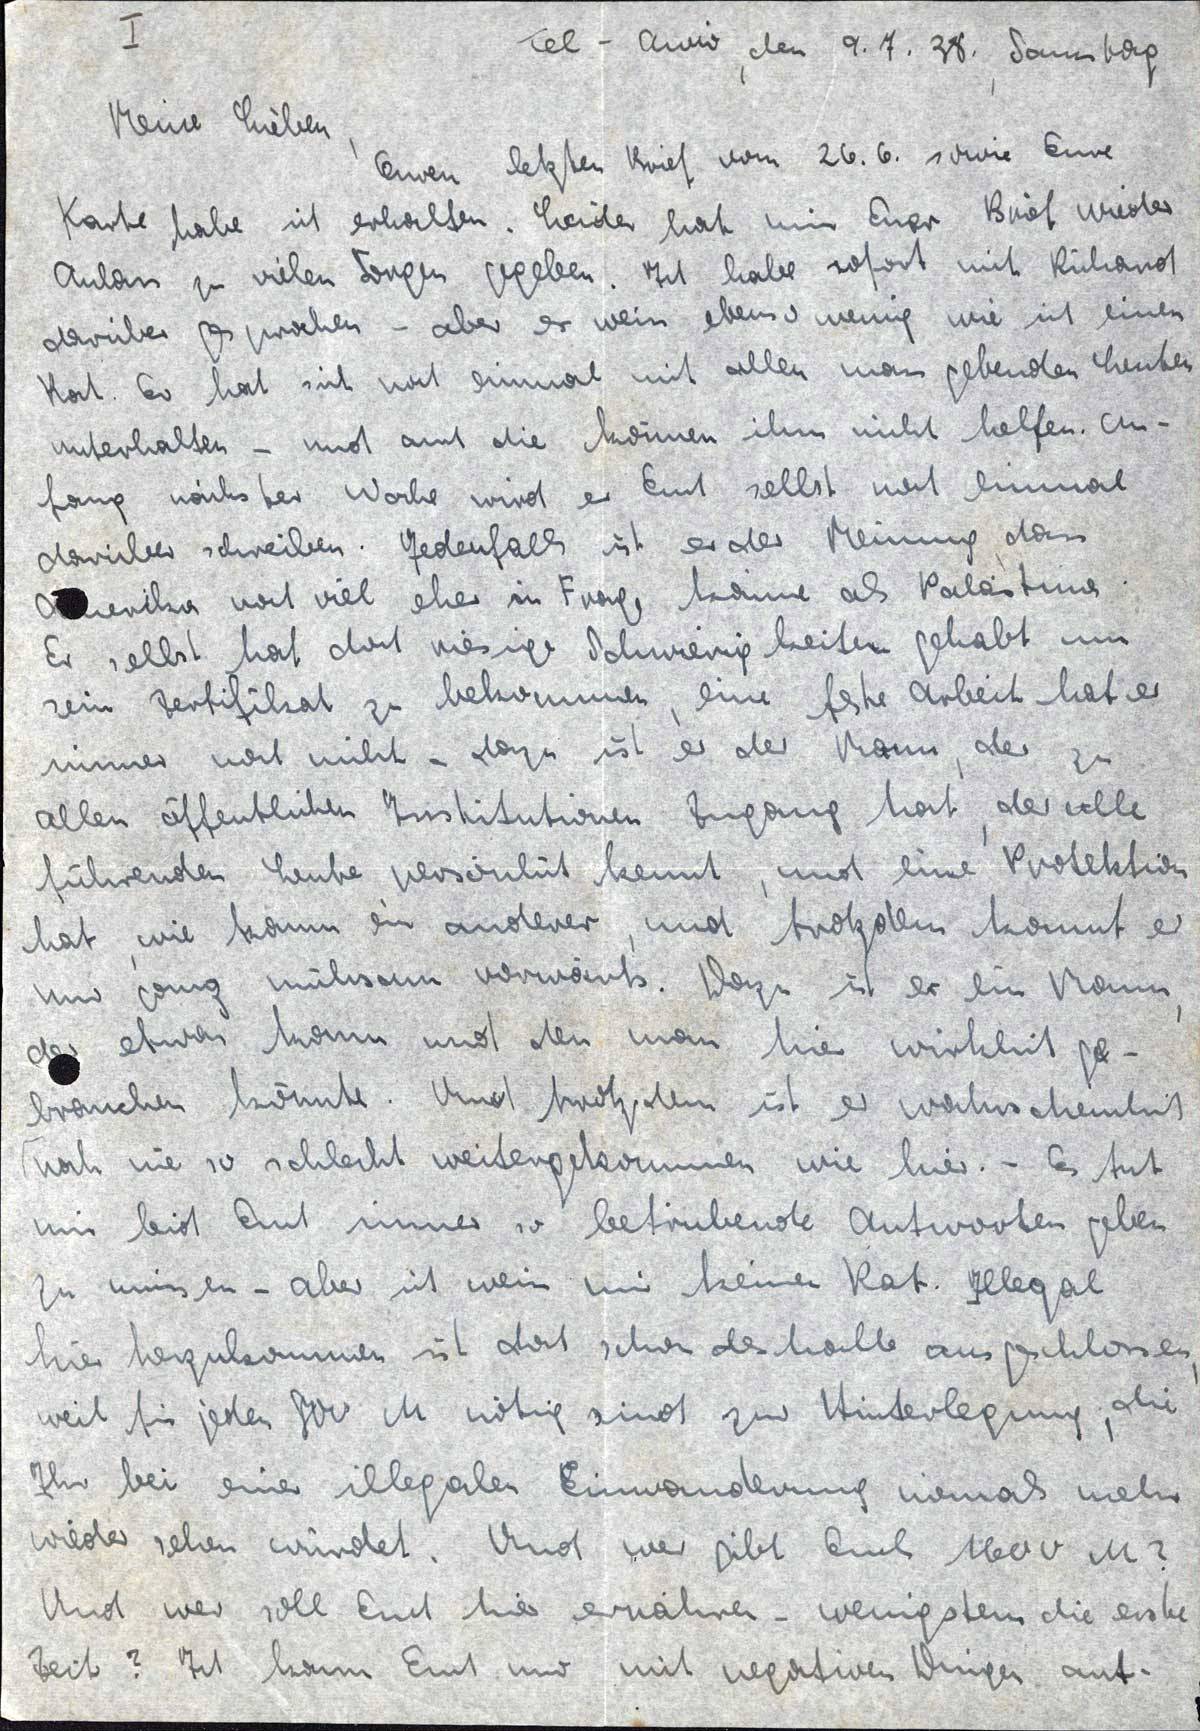 I
Tel-Aviv, den 9.7.38., Samstag
Meine Lieben,
Euren letzten Brief vom 26.6. sowie Eure
Karte habe ich erhalten. Leider hat mir Euer Brief wieder
Anlass zu vielen Sorgen gegeben. Ich habe sofort mit Richard
darüber gesprochen - aber er weiss ebenso wenig wie ich einen
Rat. Er hat sich noch einmal mit allen massgebenden Leuten
unterhalten - und auch die können ihm nicht helfen. An-
fang nächster Woche wird er Euch selbst noch einmal
darüber schreiben. Jedenfalls ist er der Meinung, dass
Amerika noch viel eher in Frage käme als Palästina.
Er selbst hat doch riesige Schwierigkeiten gehabt um
sein Zertifikat zu bekommen, eine feste Arbeit hat er
immer noch nicht - dazu ist er der Mann, der zu
allen öffentlichen Institutionen Zugang hat, der alle
führenden Leute persönlich kennt, und eine Protektion
hat, wie kaum ein anderer, und trotzdem kommt er
nur ganz mühsam vorwärts. Dazu ist er ein Mann,
der etwas kann und den man hier wirklich ge-
brauchen könnte. Und trotzdem ist er wahrscheinlich
noch nie so schlecht weitergekommen wie hier. - Es tut
mir leid Euch immer so betrübende Antworten geben
zu müssen - aber ich weiss mir keinen Rat. Illegal
hier herzukommen ist doch schon deshalb ausgeschlossen,
weil für jeden 800 M nötig sind zur Hinterlegung, die
Ihr bei einer illegalen Einwanderung niemals mehr
wieder sehen würdet. Und wer gibt Euch 1600 M?
Und wer soll Euch hier ernähren - wenigstens die erste
Zeit? Ich kann Euch nur mit negativen Dingen ant-